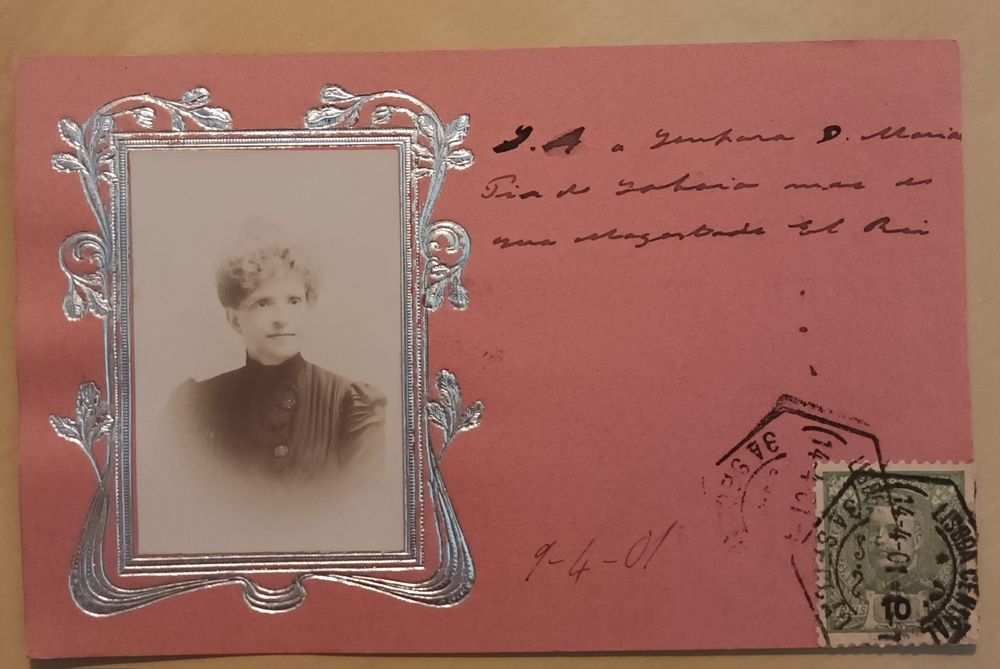 S. A a Senhora D. Maria
Pia de Saboia mae de
Sua Magestade El Rei
9-4-01
(14-4-01)
3A SEC
(14-4-01
LISBOA CENTRAL
3A SEC
10